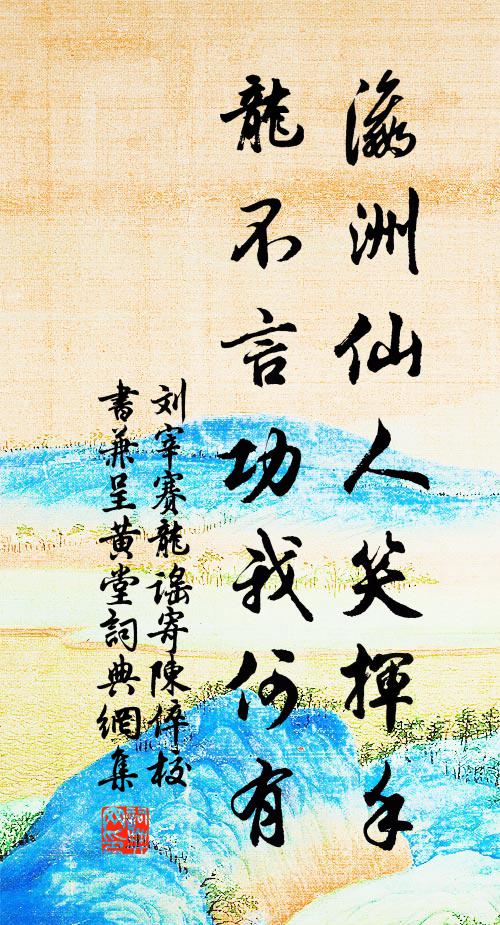 瀛洲仙人笑揮手
龍不言功我何有
刘宰賽龍謠寄陳倅校
書兼呈黃堂詞典網集